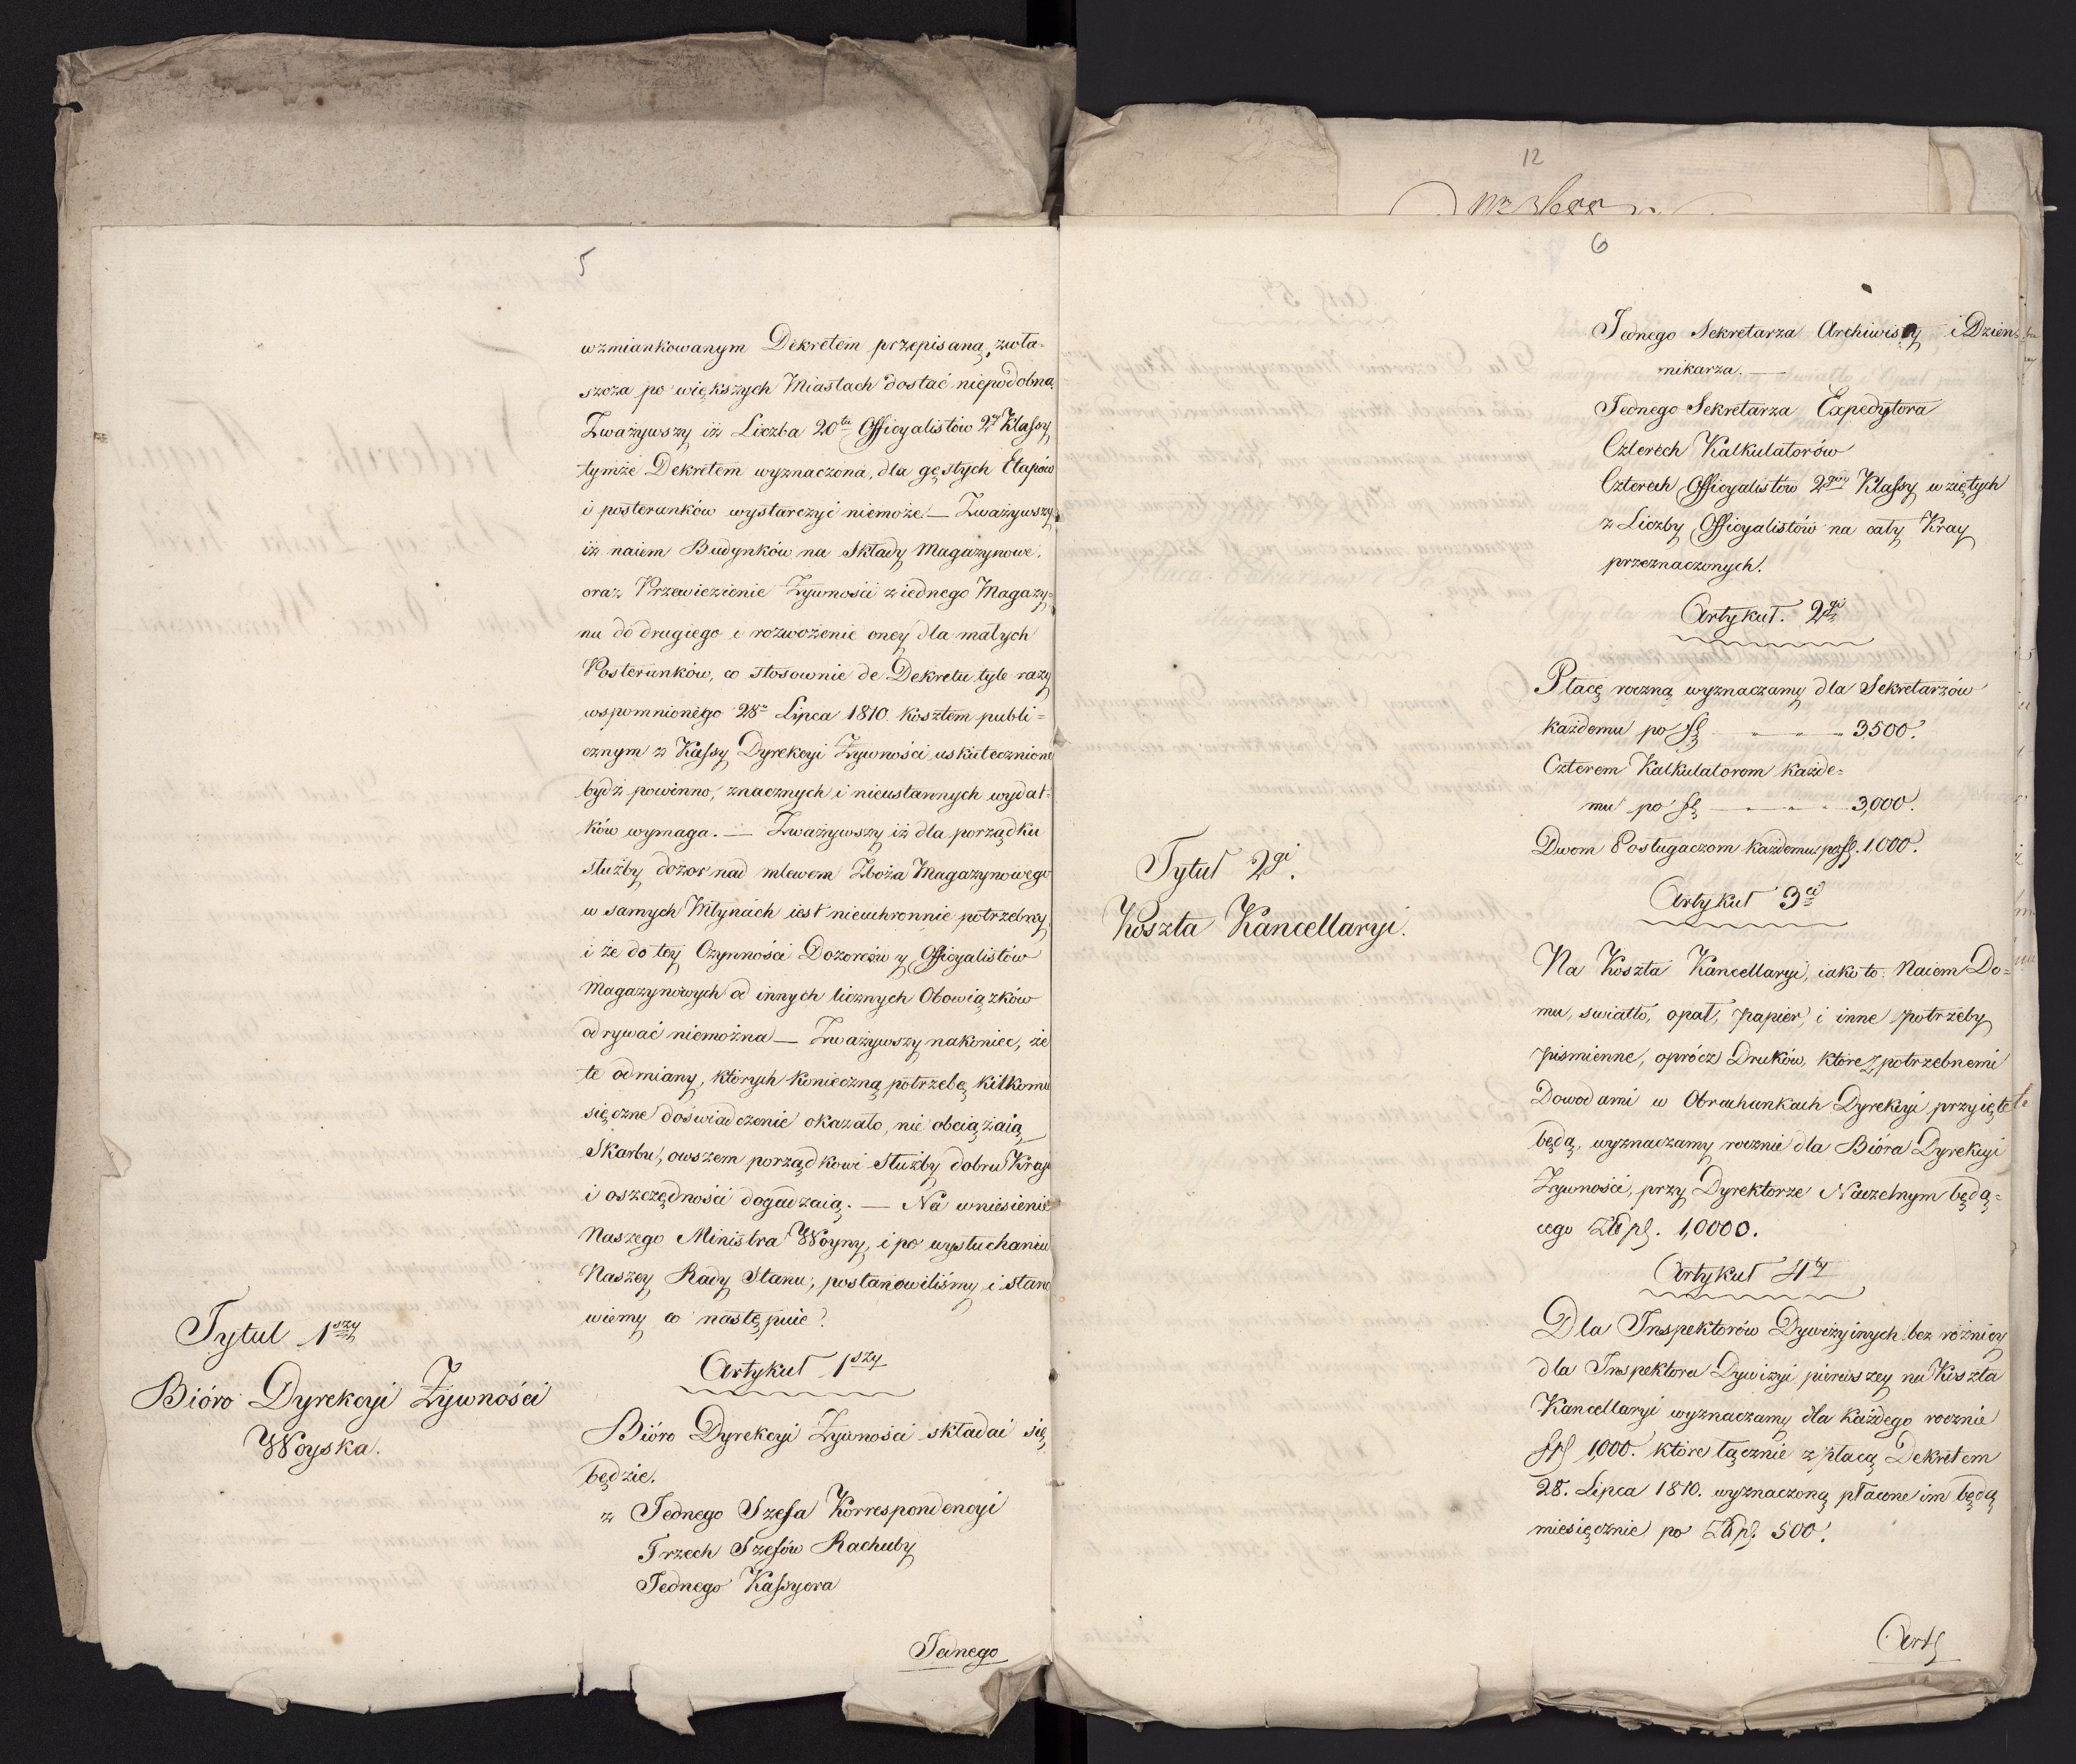 5
wzmiankowanym Dekretem przepisaną, zwła-
szcza po większych Miastach dostać niepodobna,
Zważywszy iż Liczba 20tu Officyalistów 2ey Klassy
tymże Dekretem wyznaczona, dla gęstych Etapów
i posterunków wystarczyć niemoże. — Zważywszy
iż naiem Budynków na Składy Magazynowe,
oraz Przewiezienie Żywności z iednego Magazy-
nu do drugiego i rozwożenie oney dla małych
Posterunków, co stosownie do Dekretu tyle razy
wspomnionego 28o Lipca 1810. kosztem publi=
cznym z Kassy Dyrekcyi Żywności uskutecznione
bydź powinno, znacznych i nieustannych wydat-
ków wymaga. — Zważywszy iż dla porządku
służby dozor nad mlewem Zboża Magazynowego
w samych Młynach iest nieuchronnie potrzebny,
i że do tey Czynności Dozorców y Officyalistów
Magazynowych od innych licznych Obowiązków
odrywać niemożna — Zważywszy nakoniec, że
te odmiany, których konieczną potrzebę kilkomie
sięczne doświadczenie okazało, nie obciążaią
Skarbu, owszem porządkowi Służby dobru Kraju
i oszczędności dogadzaią. — Na wniesienie
Naszego Ministra Woyny, i po wysłuchaniu
Naszey Rady Stanu, postanowiliśmy i stano
wiemy co następuie.
Tytul 1szy
Bióro Dyrekcyi Żywności
Woyska.
Artykuł 1szy
Bióro Dyrekcyi Żywności składai się
będzie.
z Jednego Szefa Korrespondencyi
Trzech Szefów Rachuby
Jednego Kassyera
Jednego
12
6
Jednego Sekretarza Archiwisty i Dzien-
nikarza. —
Jednego Sekretarza Expedytora
Czterech Kalkulatorów
Czterech Officyalistów 2giey Klassy wziętych
z Liczby Officyalistów na cały Kray
przeznaczonych.
Artykuł. 2gi
Płacę roczną wyznaczamy dla Sekretarzów
każdemu po fl — 3,500.
Czterem Kalkulatorom każde-
mu po fl — 3,000.
Dwom Posługaczom każdemu po fl. 1,000.
Tytuł 2gi.
Koszta Kancellaryi.
Artykuł 3ci
Na Koszta Kancellaryi, iako to: Naiem Do=
mu, swiatło, opał, papier, i inne potrzeby
pismienne, oprócz Druków, które potrzebnemi
Dowodami w Obrachunkach Dyrekcyi przyięte
będą, wyznaczamy rocznie dla Bióra Dyrekcyi
Żywności, przy Dyrektorze Naczelnym będą=
cego Złpl. 1,0000.
Artykuł 4ty
Dla Inspektorów Dywizyinych bez rożnicy
dla Inspektora Dywizyi pierwszey na Koszta
Kancellaryi wyznaczamy dla każdego rocznie
fpl 1,000. które łącznie z płacą Dekretem
28. Lipca 1810. wyznaczoną płacone im będą
miesięcznie po Złpl. 500.
Artl